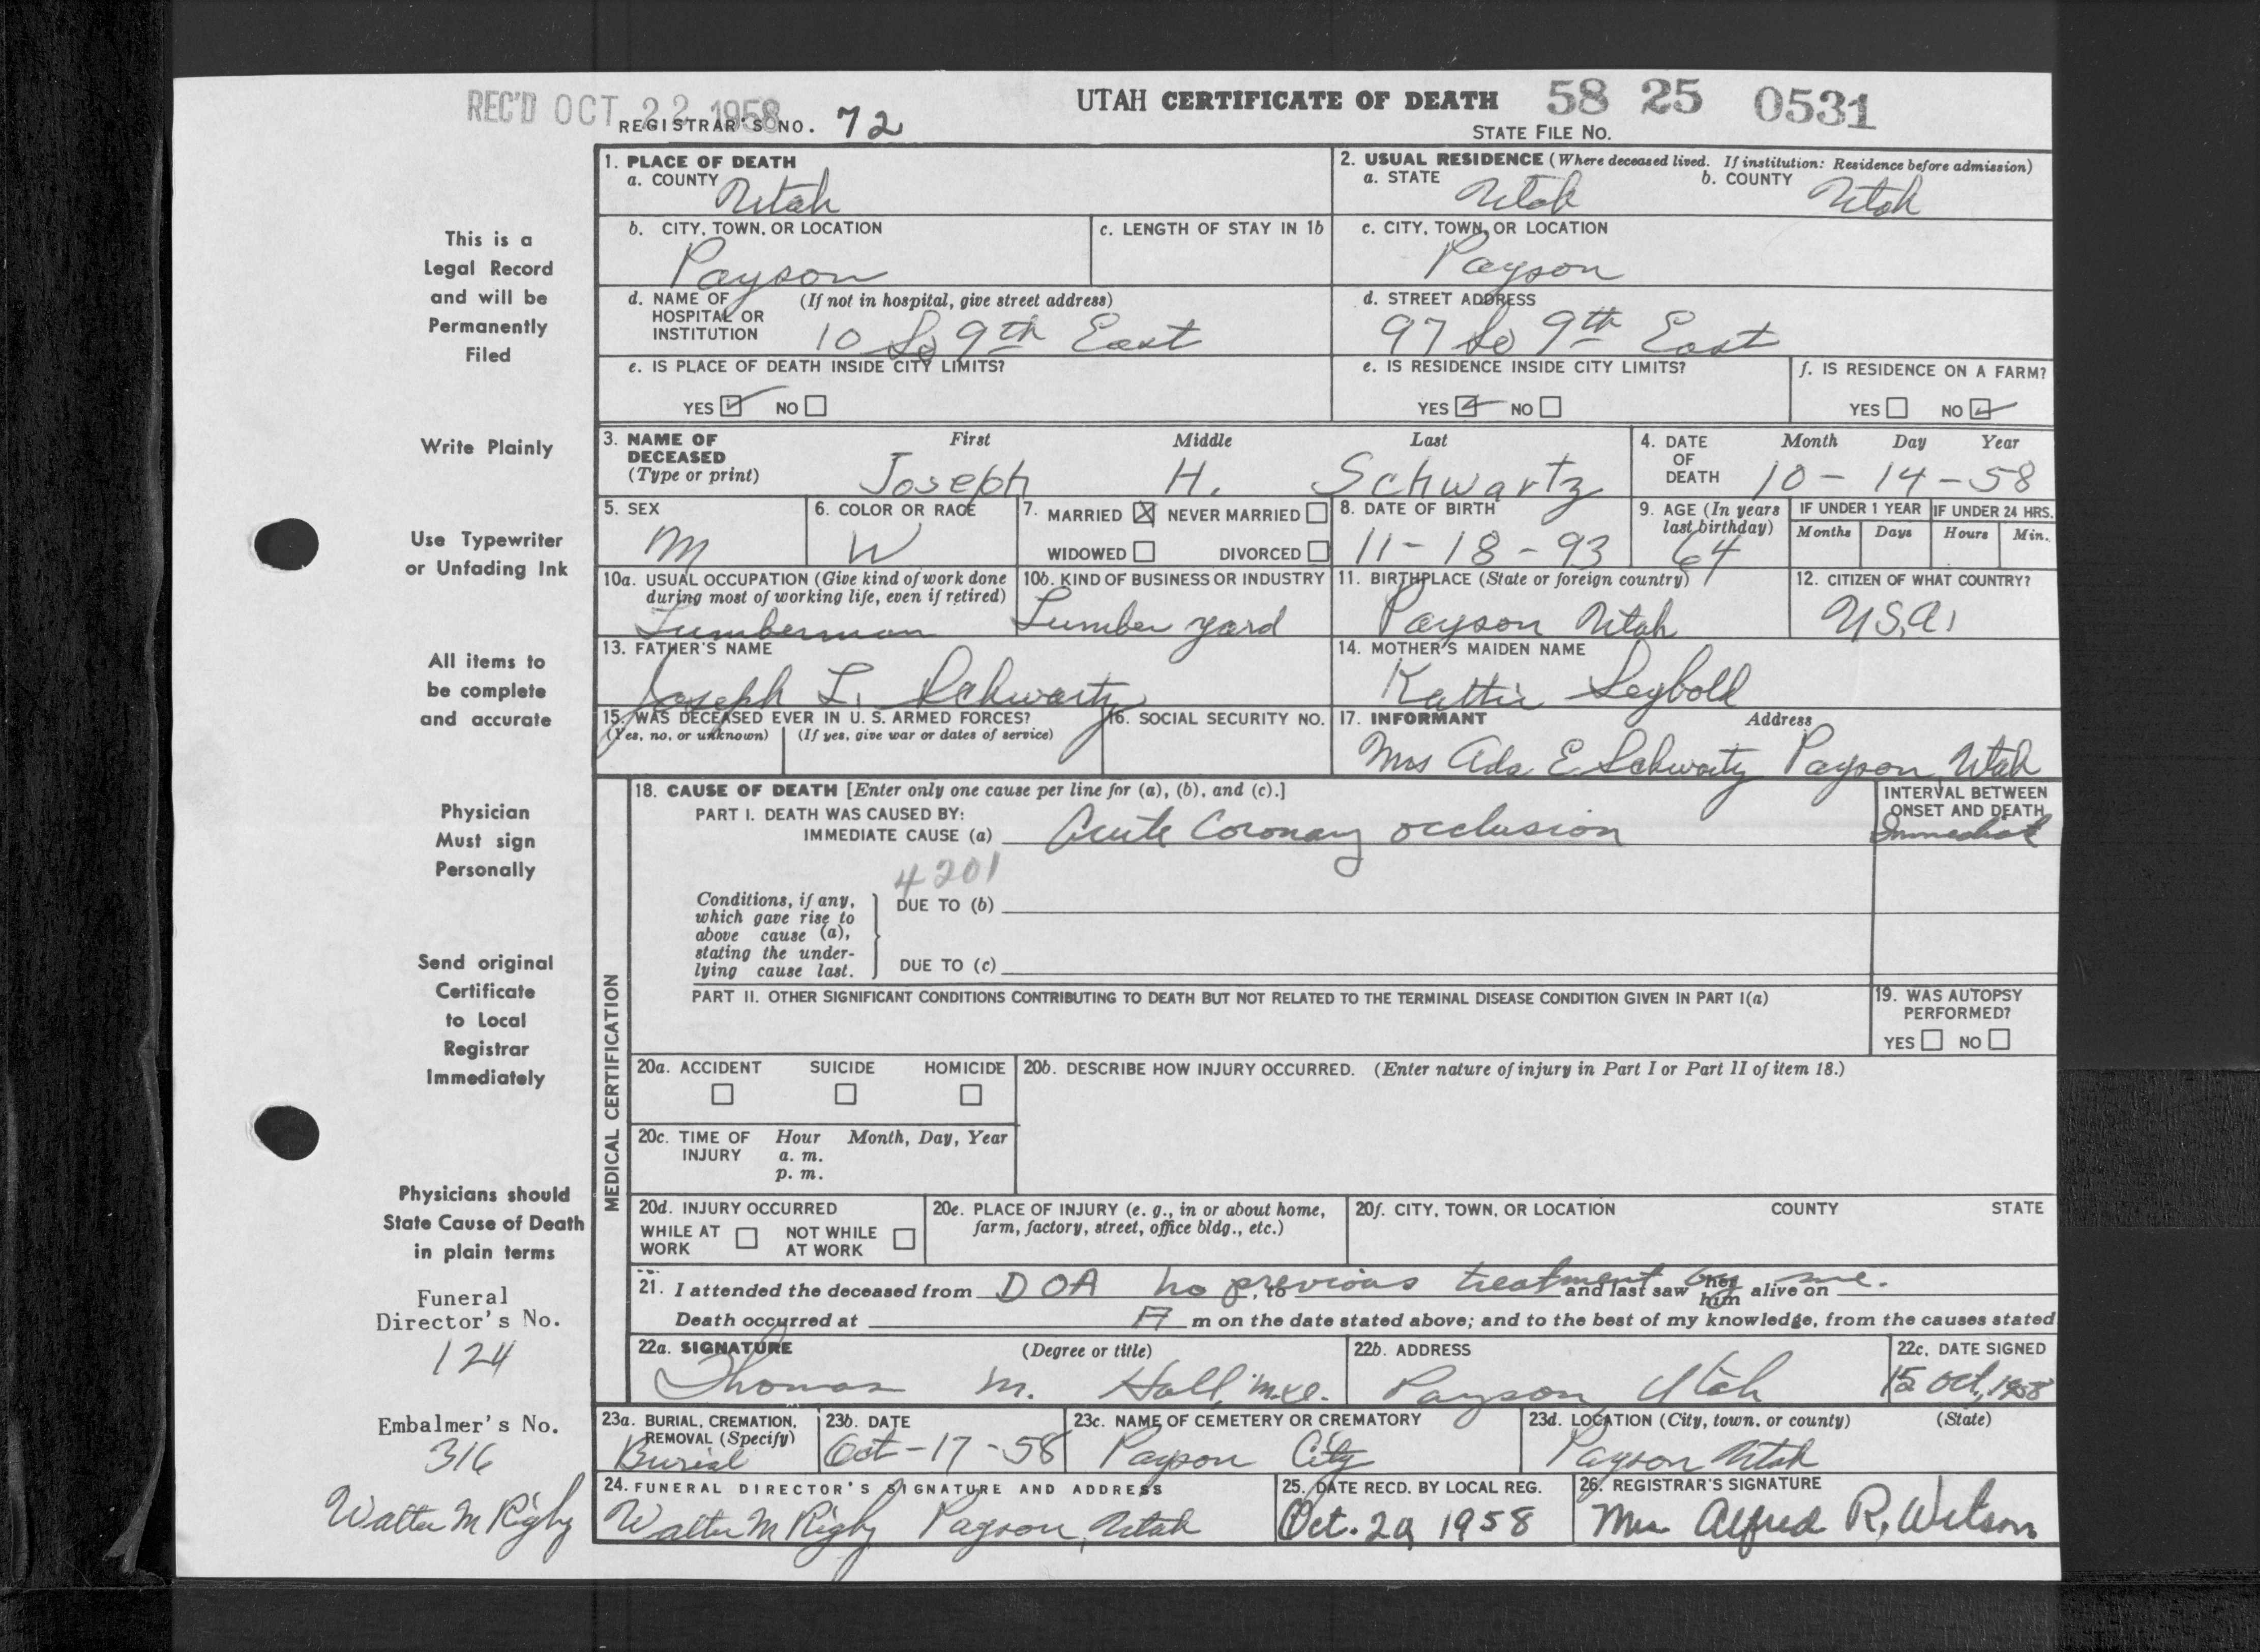 REC'D OCT 22 1958
REGISTRAR'S NO. 72
UTAH CERTIFICATE OF DEATH 58 25 0531
STATE FILE NO.
This is a
Legal Record
and will be
Permanently
Filed
Write Plainly
Use Typewriter
or Unfading Ink
All items to
be complete
and accurate
Physician
Must sign
Personally
Send original
Certificate
to Local
Registrar
Immediately
Physicians should
State Cause of Death
in plain terms
Funeral
Director's No.
124
Embalmer's No.
316
Walter M Rigby
1. PLACE OF DEATH
a. COUNTY Utah
2. USUAL RESIDENCE (Where deceased lived. If institution: Residence before admission)
a. STATE Utah b. COUNTY Utah
b. CITY, TOWN, OR LOCATION
Payson
c. LENGTH OF STAY IN 1b
c. CITY, TOWN, OR LOCATION
Payson
d. NAME OF HOSPITAL OR INSTITUTION (If not in hospital, give street address)
10 So 9th East
d. STREET ADDRESS
97 So 9th East
e. IS PLACE OF DEATH INSIDE CITY LIMITS?
YES NO
e. IS RESIDENCE INSIDE CITY LIMITS?
YES NO
f. IS RESIDENCE ON A FARM?
YES NO
3. NAME OF DECEASED (Type or print) First Middle Last
Joseph H. Schwartz
4. DATE OF DEATH Month Day Year
10-14-58
5. SEX
M
6. COLOR OR RACE
W
7. MARRIED X NEVER MARRIED
WIDOWED DIVORCED
8. DATE OF BIRTH
11-18-93
9. AGE (In years last birthday)
64
IF UNDER 1 YEAR
Months Days
IF UNDER 24 HRS.
Hours Min.
10a. USUAL OCCUPATION (Give kind of work done during most of working life, even if retired)
Lumberman
10b. KIND OF BUSINESS OR INDUSTRY
Lumber yard
11. BIRTHPLACE (State or foreign country)
Payson Utah
12. CITIZEN OF WHAT COUNTRY?
U.S.A.
13. FATHER'S NAME
Joseph L. Schwartz
14. MOTHER'S MAIDEN NAME
Kattie Seybold
15. WAS DECEASED EVER IN U. S. ARMED FORCES?
(Yes, no, or unknown) (If yes, give war or dates of service)
16. SOCIAL SECURITY NO.
17. INFORMANT Address
Mrs Ada E. Schwartz Payson, Utah
MEDICAL CERTIFICATION
18. CAUSE OF DEATH [Enter only one cause per line for (a), (b), and (c).]
PART I. DEATH WAS CAUSED BY:
IMMEDIATE CAUSE (a) Acute Coronary occlusion
INTERVAL BETWEEN ONSET AND DEATH
Immediate
4201
Conditions, if any, which gave rise to above cause (a), stating the underlying cause last.
DUE TO (b)
DUE TO (c)
PART II. OTHER SIGNIFICANT CONDITIONS CONTRIBUTING TO DEATH BUT NOT RELATED TO THE TERMINAL DISEASE CONDITION GIVEN IN PART I(a)
19. WAS AUTOPSY PERFORMED?
YES NO
20a. ACCIDENT SUICIDE HOMICIDE
20b. DESCRIBE HOW INJURY OCCURRED. (Enter nature of injury in Part I or Part II of item 18.)
20c. TIME OF INJURY Hour Month, Day, Year
a. m.
p. m.
20d. INJURY OCCURRED
WHILE AT WORK NOT WHILE AT WORK
20e. PLACE OF INJURY (e. g., in or about home, farm, factory, street, office bldg., etc.)
20f. CITY, TOWN, OR LOCATION COUNTY STATE
21. I attended the deceased from DOA no previous treatment by me. , to and last saw her him alive on
Death occurred at m on the date stated above; and to the best of my knowledge, from the causes stated
22a. SIGNATURE (Degree or title)
Thomas M. Hall, M.D.
22b. ADDRESS
Payson Utah
22c. DATE SIGNED
15 Oct, 1958
23a. BURIAL, CREMATION, REMOVAL (Specify)
Burial
23b. DATE
Oct-17-58
23c. NAME OF CEMETERY OR CREMATORY
Payson City
23d. LOCATION (City, town, or county) (State)
Payson Utah
24. FUNERAL DIRECTOR'S SIGNATURE AND ADDRESS
Walter M Rigby Payson, Utah
25. DATE RECD. BY LOCAL REG.
Oct. 20, 1958
26. REGISTRAR'S SIGNATURE
Mrs Alfred R. Wilson